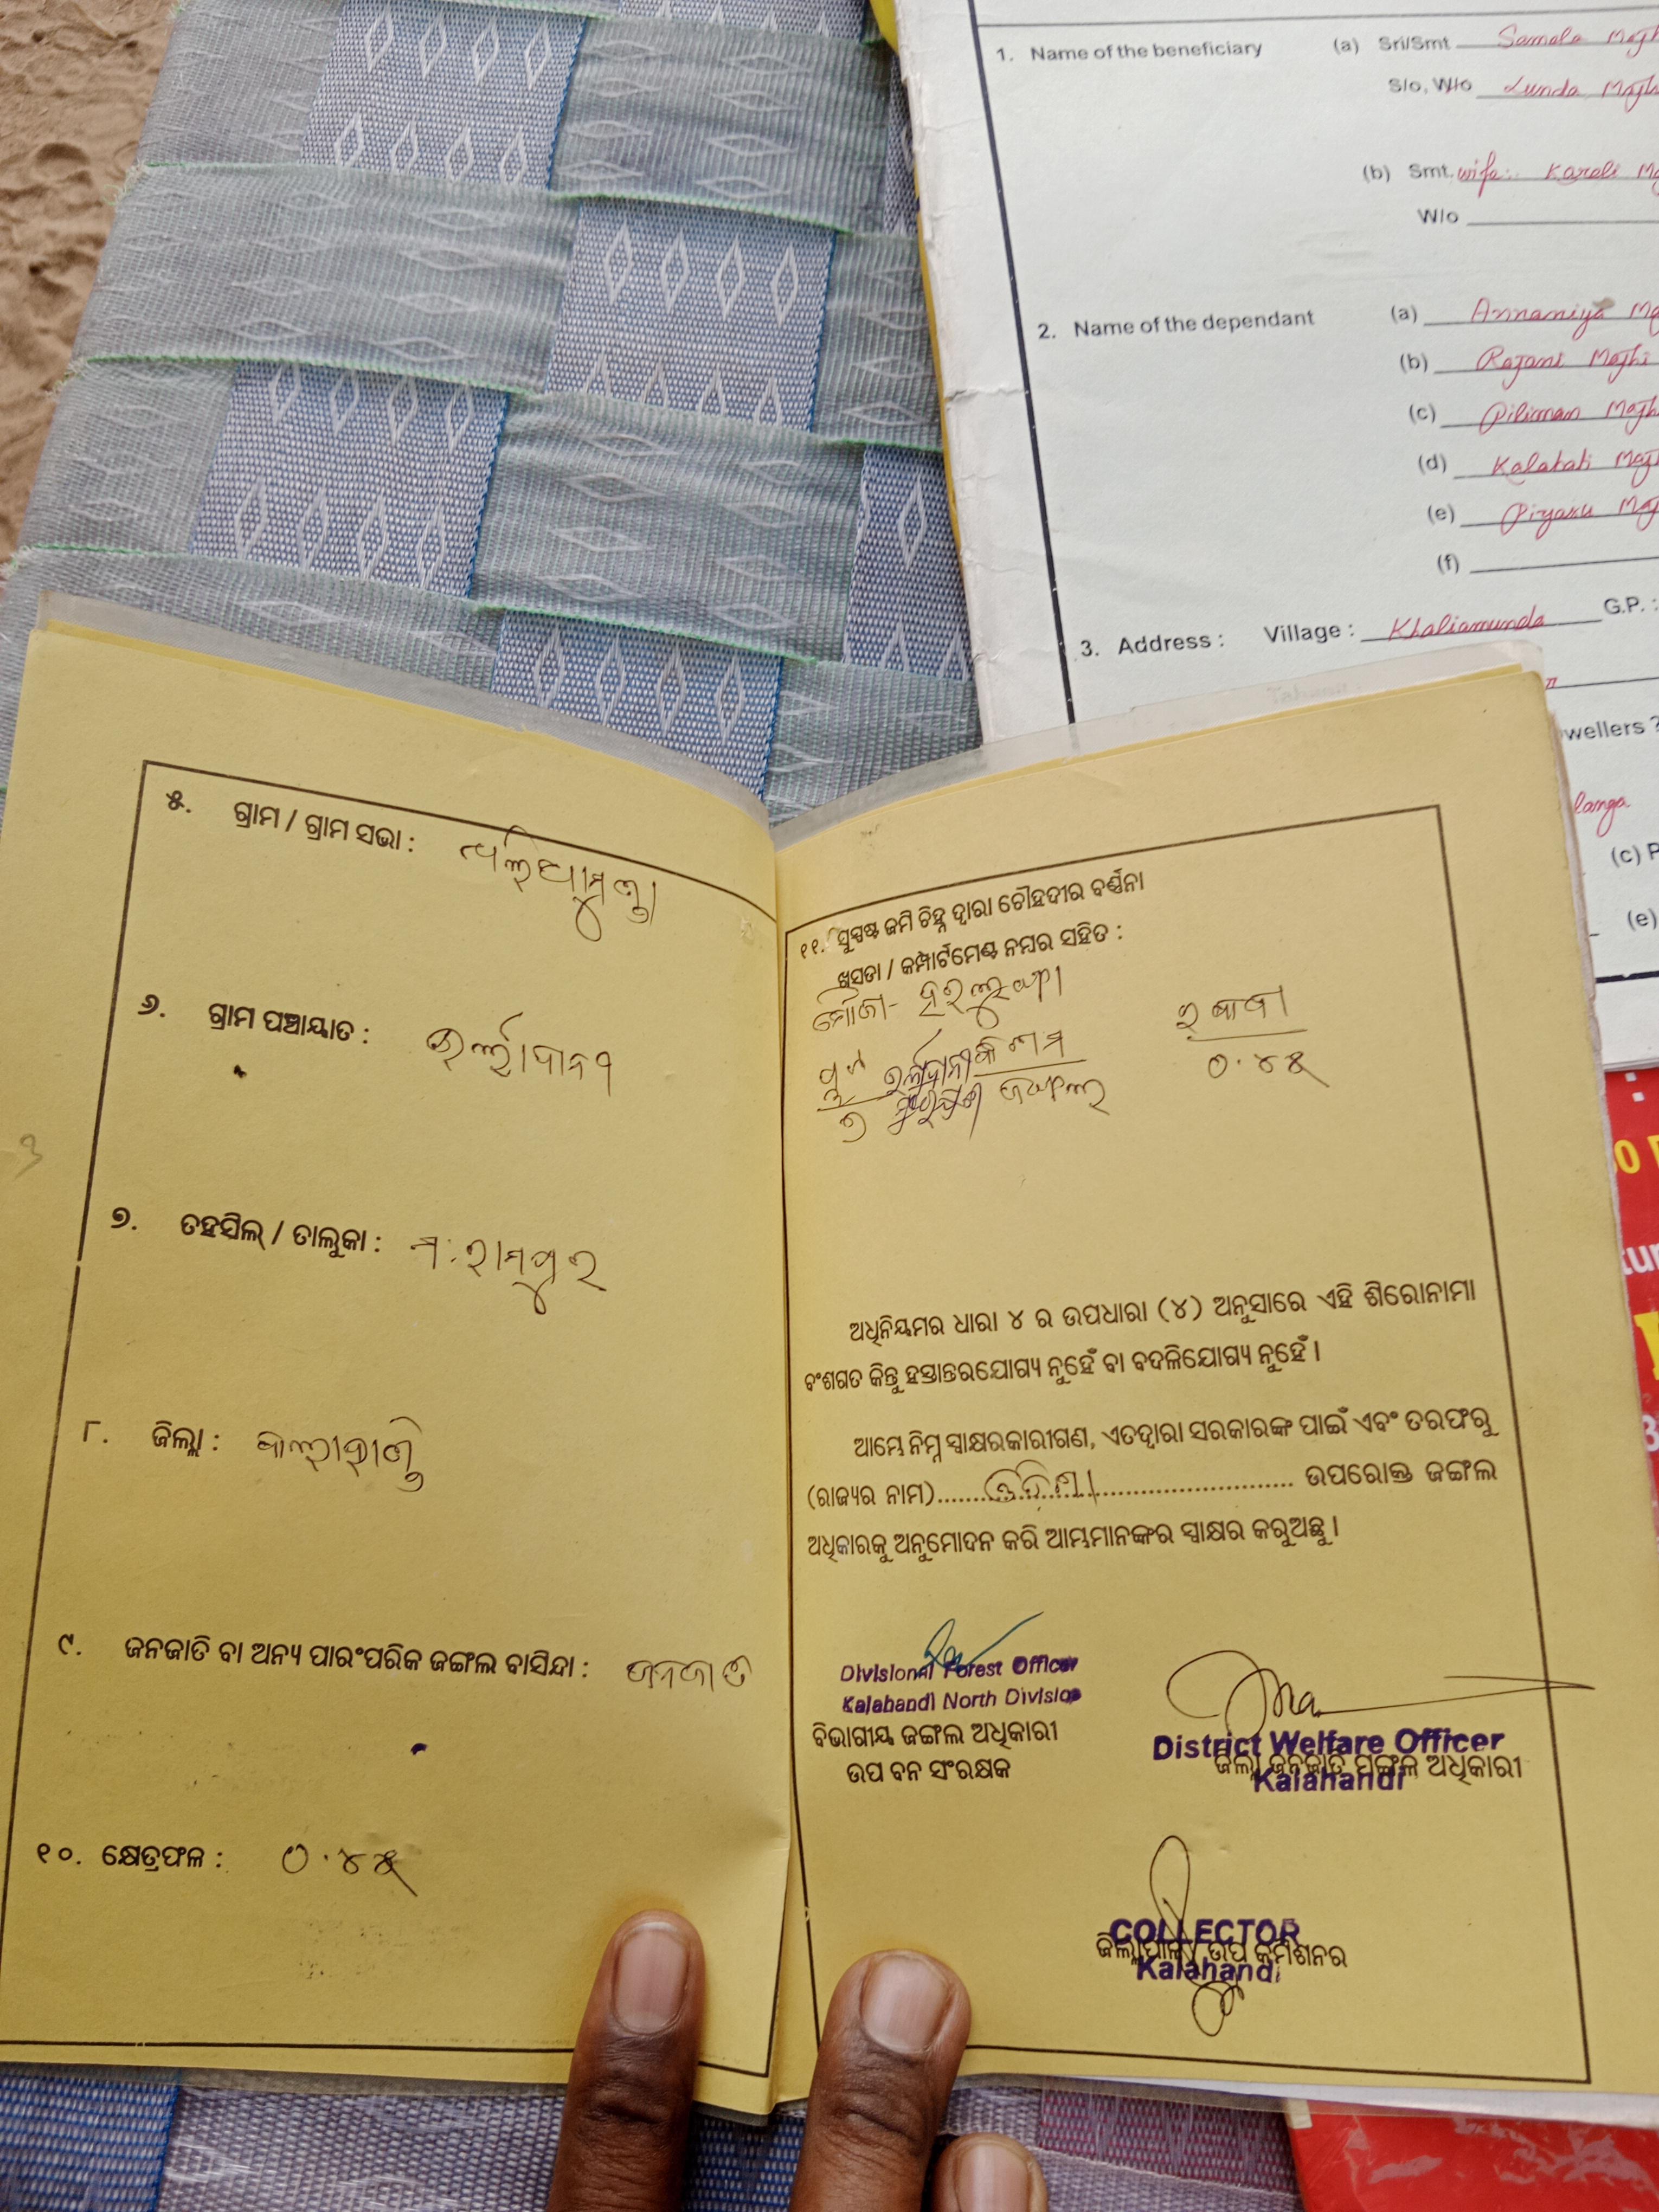 1. Name of the beneficiary (a) Sri/Smt Samala
S/o, W/o Lunda
(b) Smt. wife:. Karali
W/o
2. Name of the dependant (a) Annamiya
(b) Rajani Majhi
(c) Piliman
(d) Kalabati
(e) Piyasu
(f)
3. Address : Village : Khaliamunda G.P. :
wellers ?
langa
(c) P
(e)
୫. ଗ୍ରାମ / ଗ୍ରାମ ସଭା : ଖଲିଆମୁଣ୍ଡା
୬. ଗ୍ରାମ ପଞ୍ଚାୟାତ :
୭. ତହସିଲ୍ / ତାଲୁକା : ମ:ରାମପୁର
୮. ଜିଲ୍ଲା : କଳାହାଣ୍ଡି
୯. ଜନଜାତି ବା ଅନ୍ୟ ପାରଂପରିକ ଜଙ୍ଗଲ ବାସିନ୍ଦା : ଜନଜାତି
୧୦. କ୍ଷେତ୍ରଫଳ : ୦.୪୫
୧୧. ସୁସ୍ପଷ୍ଟ ଜମି ଚିହ୍ନ ଦ୍ୱାରା ଚୌହଦୀର ବର୍ଣ୍ଣନା
ଖସଡା / କମ୍ପାର୍ଟମେଣ୍ଟ ନମ୍ବର ସହିତ :
ମୌଜା-
କିସମ
ଜଙ୍ଗଲ
୦.୪୫
ଅଧିନିୟମର ଧାରା ୪ ର ଉପଧାରା (୪) ଅନୁସାରେ ଏହି ଶିରୋନାମା
ବଂଶଗତ କିନ୍ତୁ ହସ୍ତାନ୍ତରଯୋଗ୍ୟ ନୁହେଁ ବା ବଦଳିଯୋଗ୍ୟ ନୁହେଁ ।
ଆମ୍ଭେ ନିମ୍ନ ସ୍ୱାକ୍ଷରକାରୀଗଣ, ଏତଦ୍ୱାରା ସରକାରଙ୍କ ପାଇଁ ଏବଂ ତରଫରୁ
(ରାଜ୍ୟର ନାମ)........ଓଡ଼ିଶା........ ଉପରୋକ୍ତ ଜଙ୍ଗଲ
ଅଧିକାରକୁ ଅନୁମୋଦନ କରି ଆମ୍ଭମାନଙ୍କର ସ୍ୱାକ୍ଷର କରୁଅଛୁ ।
Divisional Forest Officer
Kalahandi North Division
ବିଭାଗୀୟ ଜଙ୍ଗଲ ଅଧିକାରୀ
ଉପ ବନ ସଂରକ୍ଷକ
District Welfare Officer
ଜିଲ୍ଲା ଜନଜାତି ମଙ୍ଗଳ ଅଧିକାରୀ
Kalahandi
COLLECTOR
ଜିଲ୍ଲାପାଳ / ଉପ କମିଶନର
Kalahandi